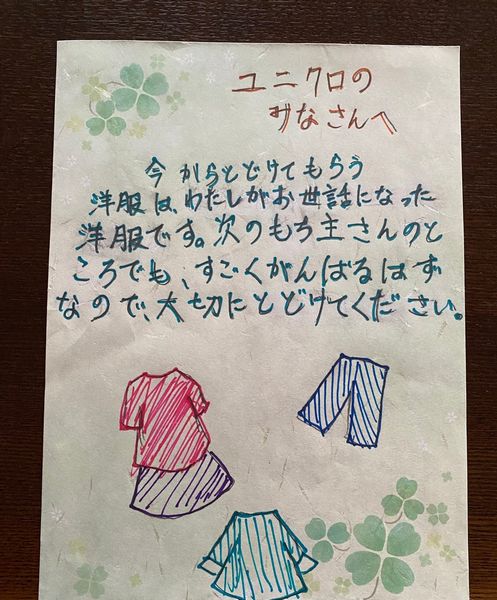 ユニクロの
みなさんへ
今からとどけてもらう
洋服は、わたしがお世話になった
洋服です。次のもち主さんのと
ころでも、すごくがんばるはず
なので、大切にとどけてください。